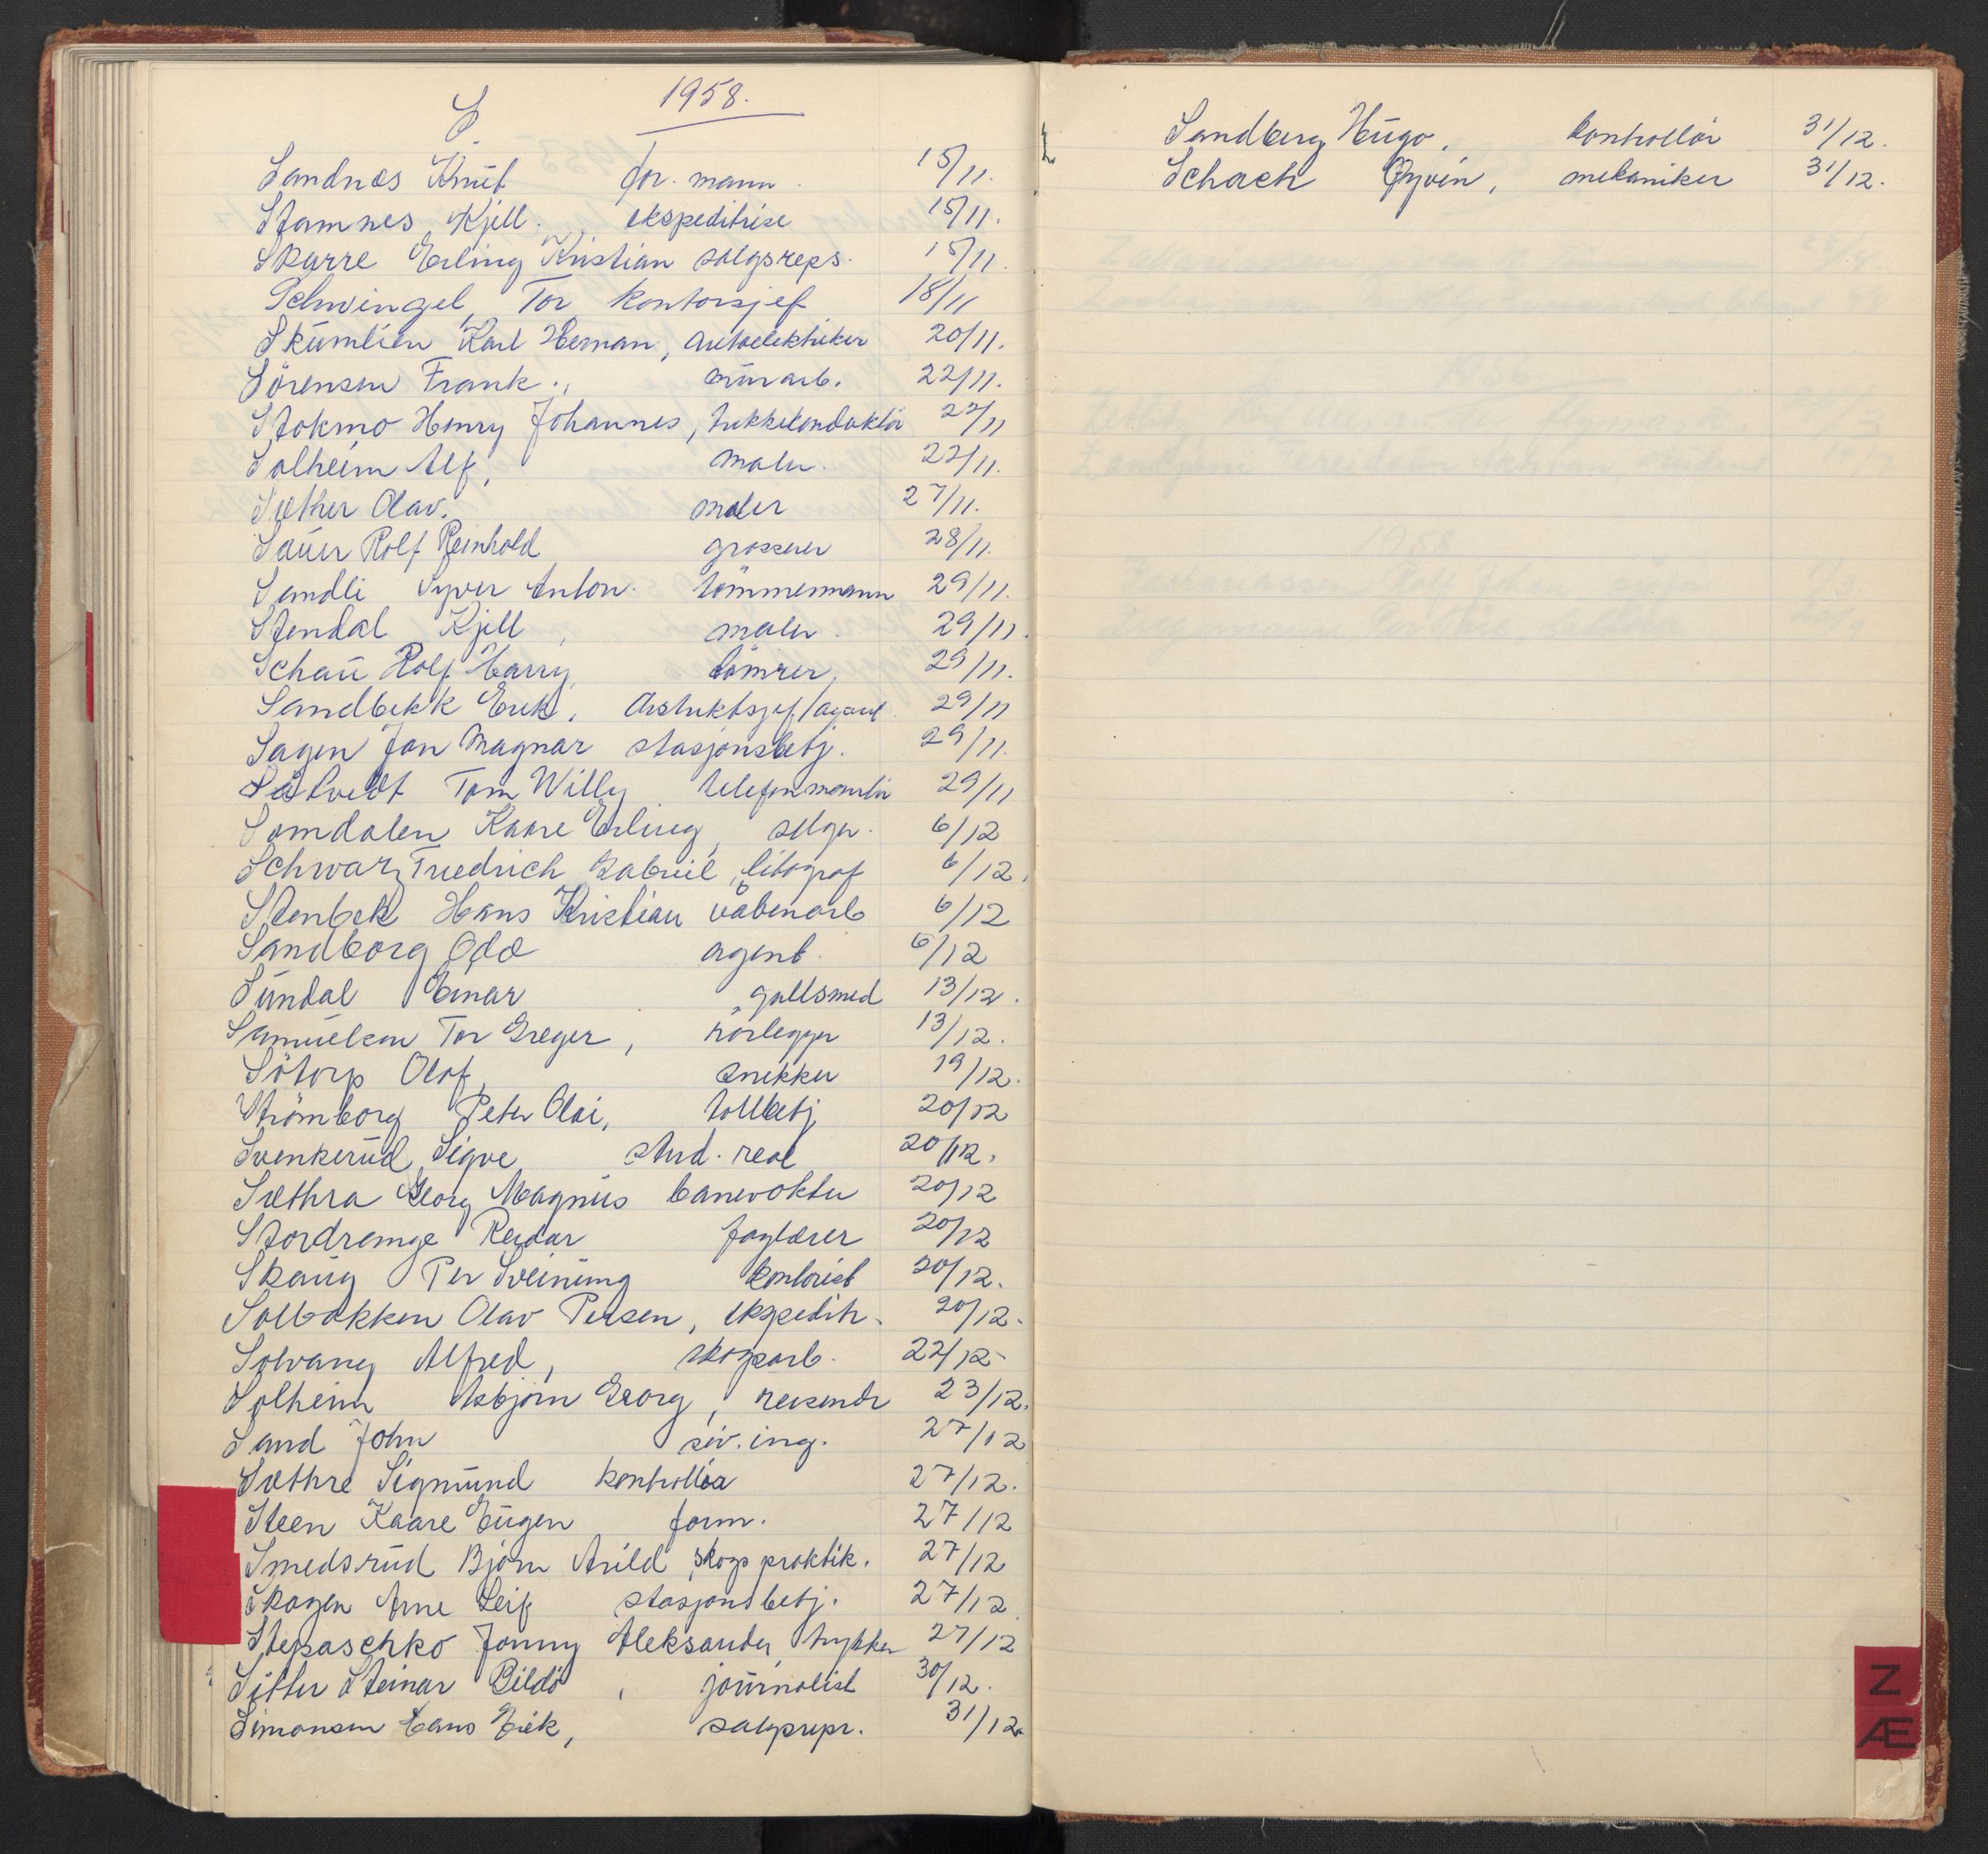 S. 1958.
Sandnes Knut for. mann. 15/11.
Stamnes Kjell. ekspeditrise 15/11.
Skarre Erling Kristian salgsreps. 15/11
Schwingel, Tor kontorsjef 18/11
Skumlien Karl Herman, autoelektriker 20/11.
Sörensen Frank., murarb. 22/11.
Stokmo Henry Johannes, trikkekonduktör 22/11
Solheim Alf, maler. 22/11.
Sæther Olav. maler 27/11.
Sauer Rolf Reinhold grosserer 28/11.
Sandli Syver Anton. tömmermann 29/11.
Stendal Kjell, maler. 29/11.
Schau Rolf Harry, tömrer, 29/11.
Sandbekk Erik, distriktssjef/agent 29/11
Sagen Jan Magnar stasjonsbetj. 29/11.
Tom Willy telefonmontör 29/11
Somdalen Kaare Erling, selger. 6/12
Schwarz Friedrich Gabriel, litograf 6/12.
Stenbek Hans Kristian våbenarb 6/12
Sandborg Odd agent. 6/12
Sundal Einar gullsmed 13/12.
Samuelsen Tor Greger, rörlegger 13/12.
Sötorp Olof, snekker 19/12.
Strömborg Peter Olai, tollbetj 20/12
Svenkerud Sigve stud. real 20/12.
Sæthra Georg Magnus banevokter 20/12
Reidar faglærer 20/12
Skaug Per Sveinung kontorist 20/12.
Solbakken Olav Persen, ekspedit. 20/12.
Solvang Alfred, skogsarb. 22/12
Solheim Asbjörn Georg, reisende 23/12.
Sand John siv. ing. 27/12
Sæthre Sigmund kontrollör 27/12.
Steen Kaare Eugen form. 27/12
Smedsrud Björn Arild, skogspraktik. 27/12
Skogen Arne Leif stasjonsbetj. 27/12
Stepaschko Jonny Aleksander, trykker 27/12
Sitter Steinar Bildö, journalist 30/12.
Simonsen Hans Erik, salgsrepr. 31/12
Sandberg Hugo, kontrollör 31/12.
Schach Øyvin, mekaniker 31/12.
Z
Æ